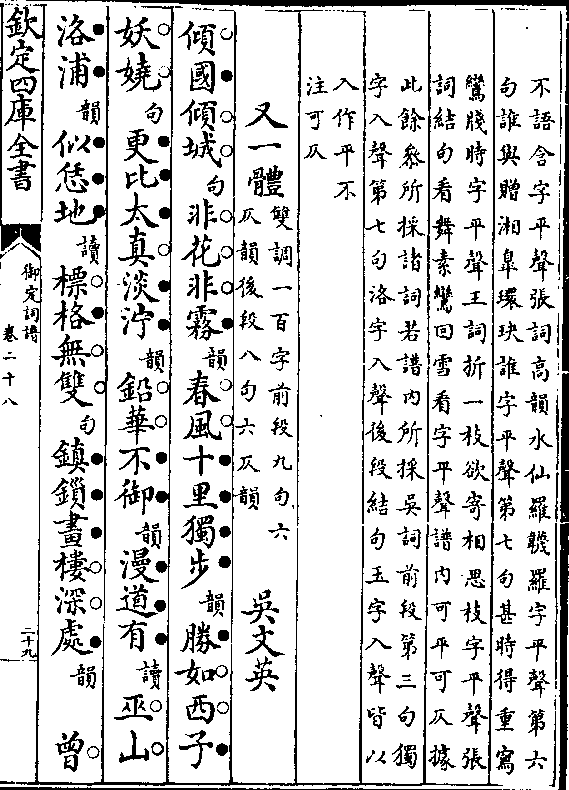 不語含字平聲張詞高韻水仙羅韈羅字平聲第六
句誰與贈湘臯環玦誰字平聲第七句甚時得重寫
鸞牋時字平聲王詞折一枝欲寄相思枝字平聲張
詞結句看舞素鸞回雪看字平聲譜内可平可仄據
此餘叅所採諸詞若譜内所採吳詞前段第三句獨
字入聲第七句洛字入聲後段結句玉字入聲皆以
入作平不
注可仄
又一體 雙調一百字前段九句六
仄韻後段八句六仄韻 吳文英
傾國傾城句非花非霧韻春風十里獨步韻勝如西子
妖嬈句更比太真淡濘韻鉛華不御韻漫道有讀巫山
洛浦韻似恁地讀標格無雙句鎮鎖畫樓深處韻 曾
欽定四庫全書 御定詞譜 卷二十八 二十九